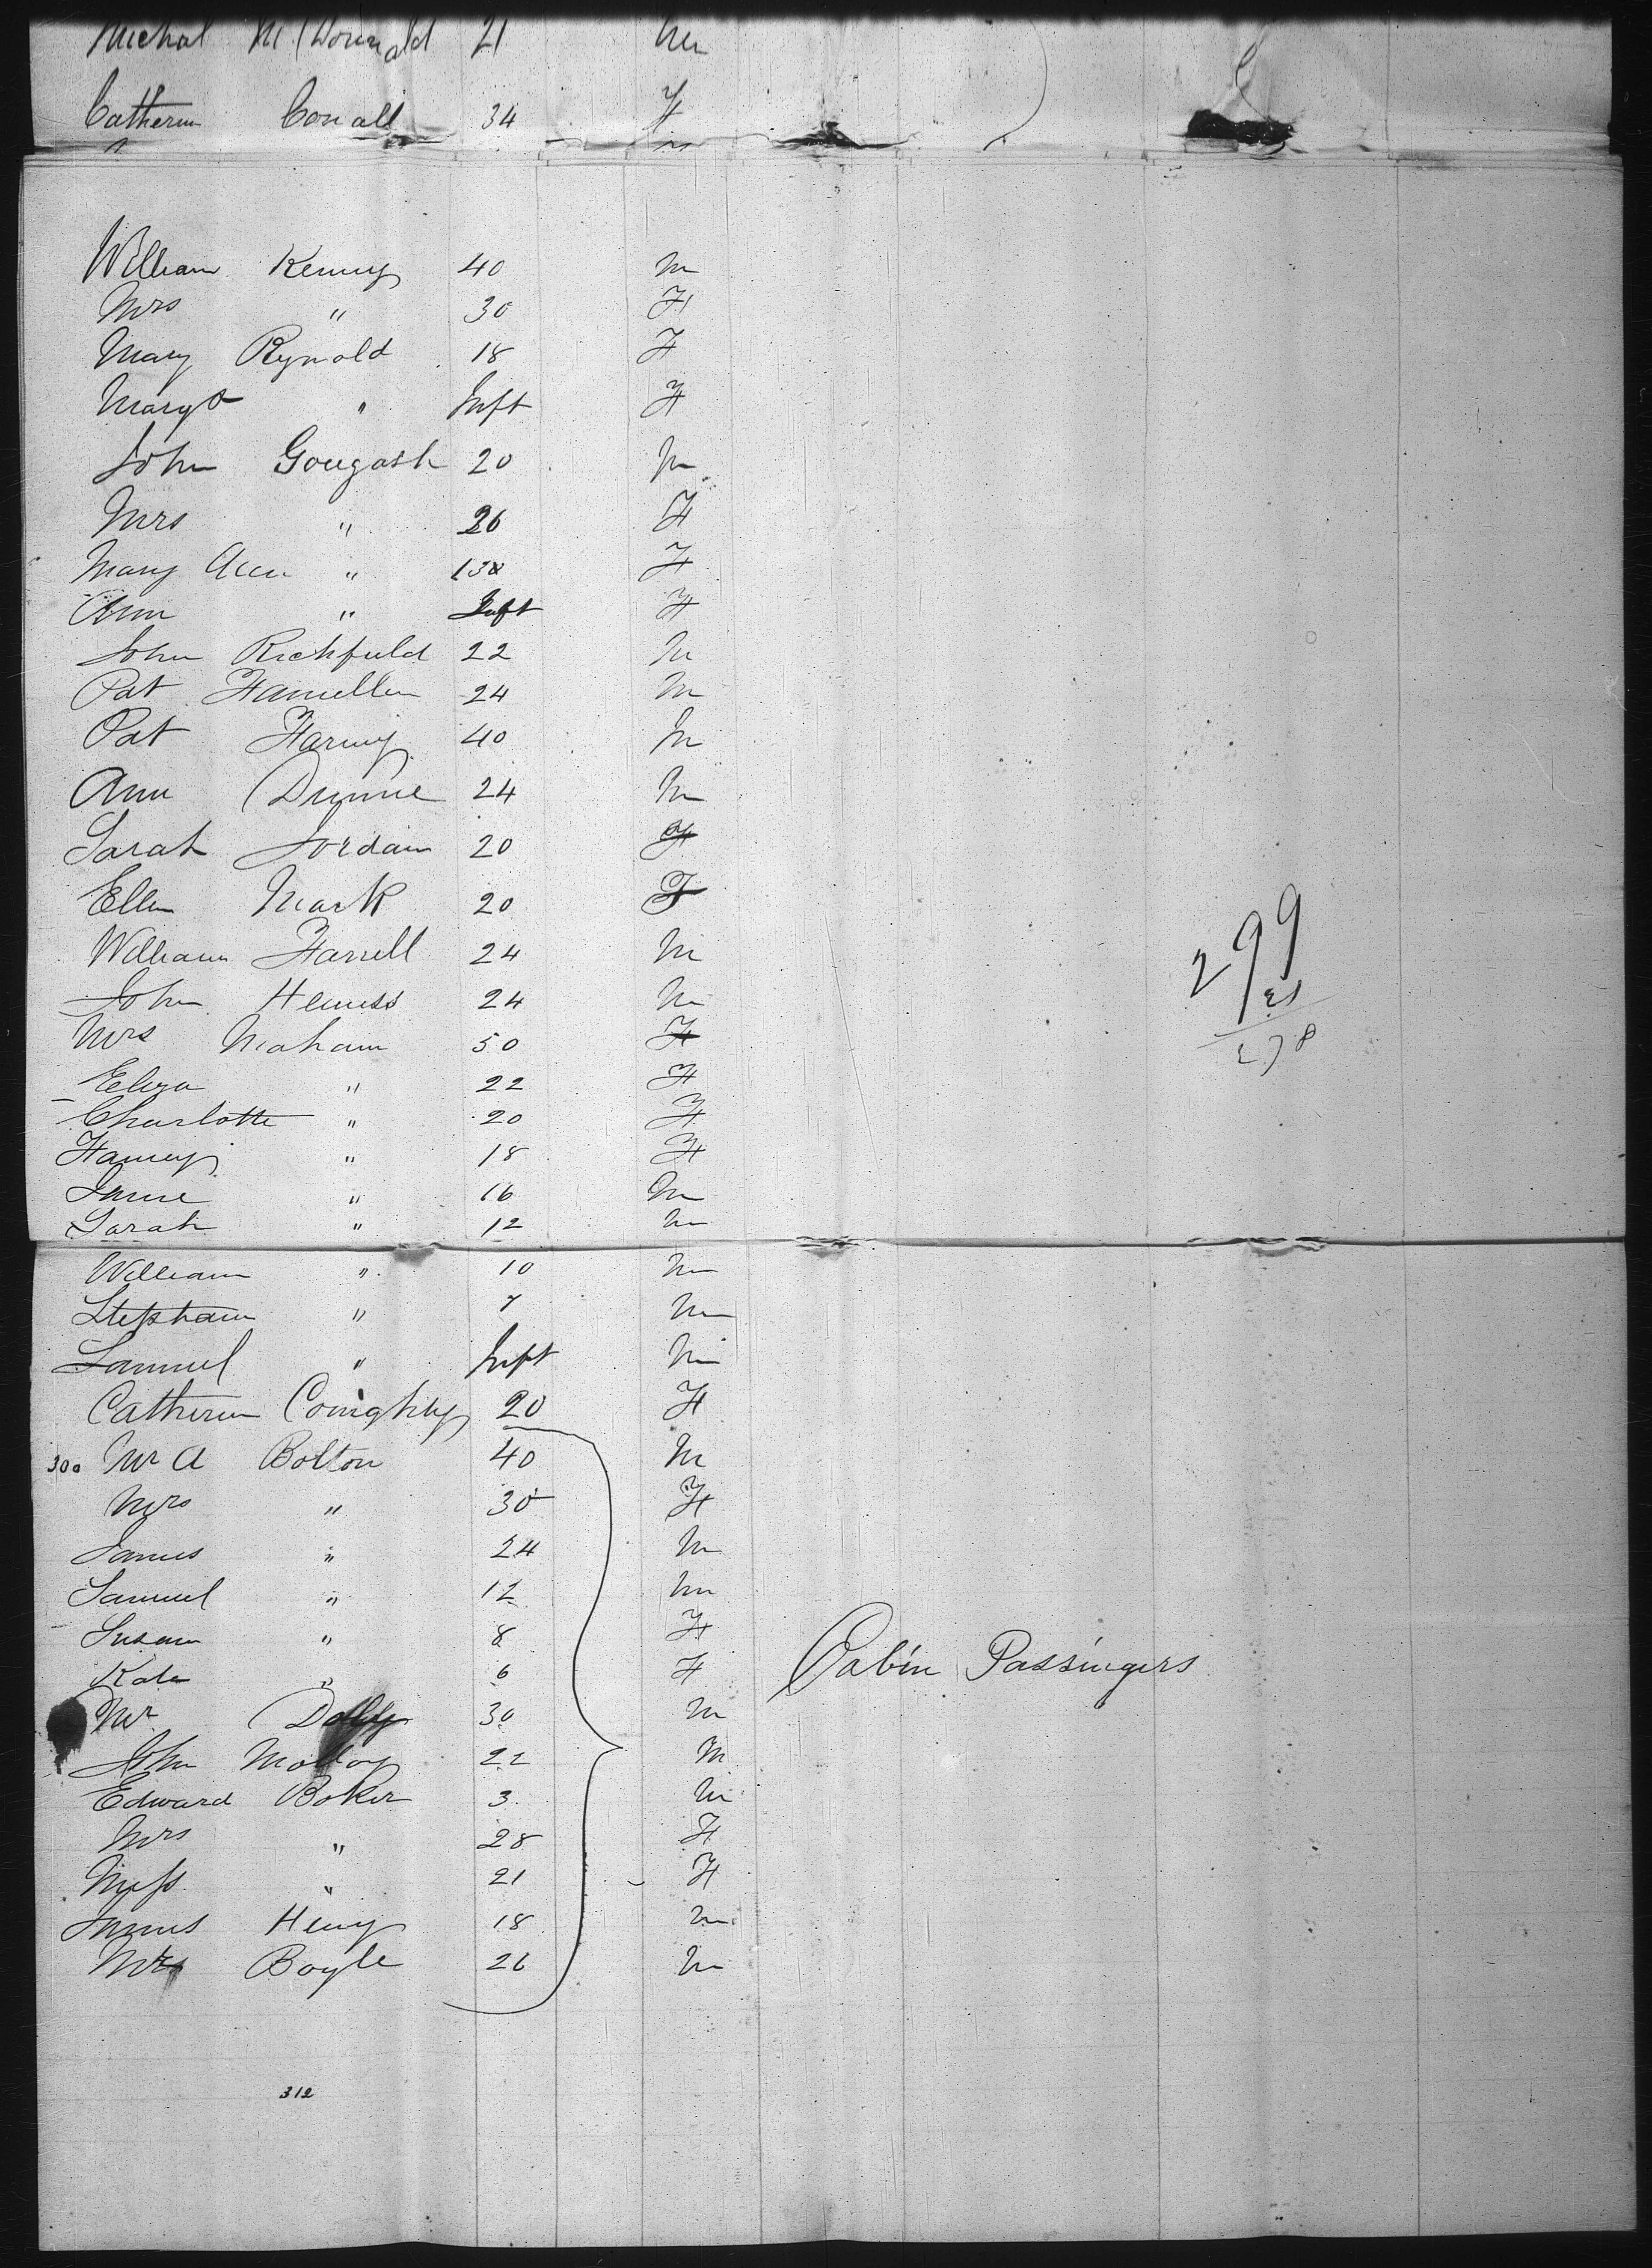 Michal McDonnald 21 M
Catherin Conall 34 F
William Kenny 40 M
Mrs " 30 F
Mary Rynold 18 F
Margt " Inft F
John Gougash 20 M
Mrs " 26 F
Mary Ann " 13 F
Ann " Inft F
John Richfield 22 M
Pat 24 M
Pat 40 M
Ann Dunne 24 M
Sarah Jordain 20 F
Ellen Mark 20 F
William Farrell 24 M
John 24 M
Mrs Maham 50 F
Eliza " 22 F
Charlotte " 20 F
Fanny " 18 F
Jane " 16 M
Sarah " 12 M
William " 10 M
Stepham " 7 M
Samuel " Inft M
Catherin 20 F
300 Mr A Bolton 40 M
Mrs " 30 F
James " 24 M
Samuel " 12 M
Susan " 8 F
Kate " 6 F
Mr Dolly 30 M
John Molloy 22 M
Edward Boker 3 M
Mrs " 28 F
Miss " 21 F
James Henry 18 M
Mrs Boyle 26 M
Cabin Passingers
299
21
278
312